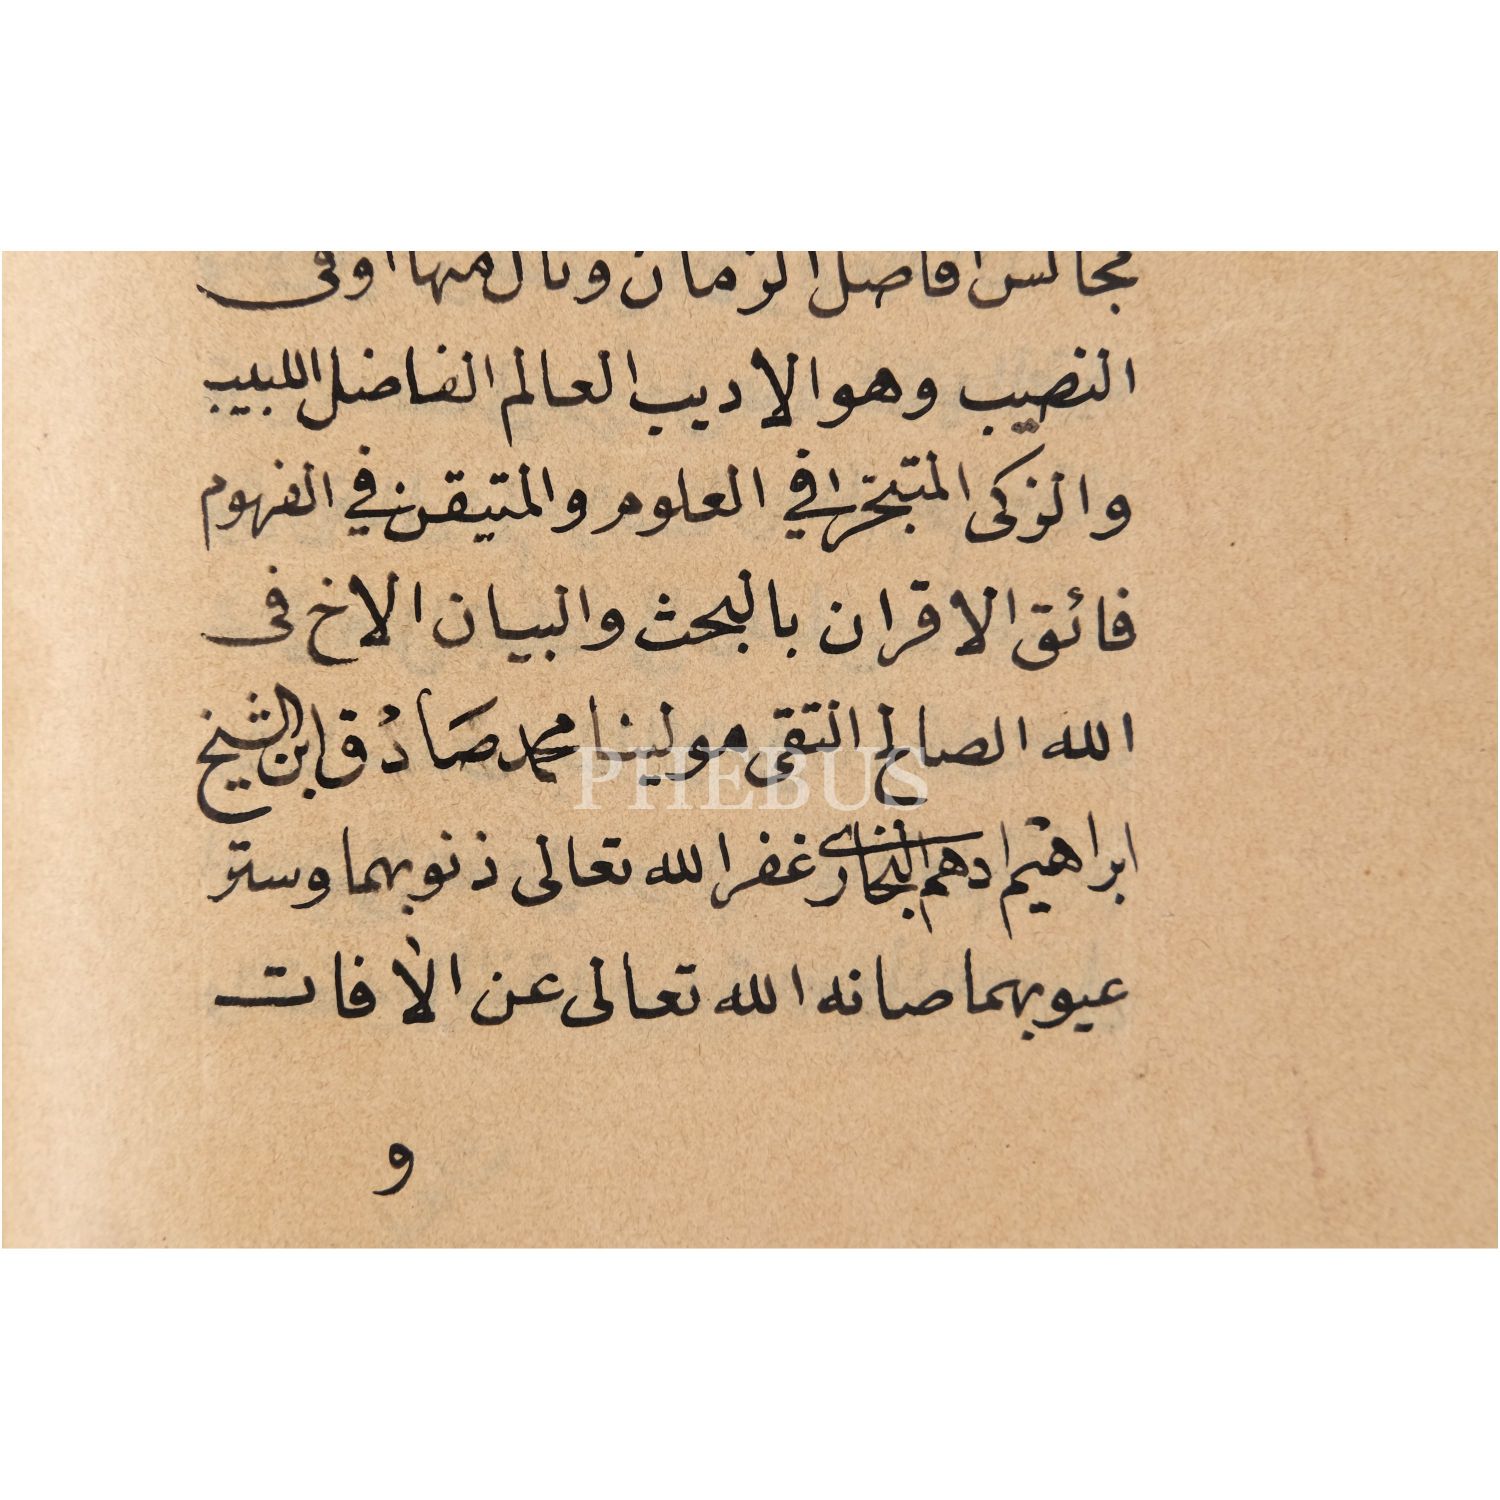 مجالس افاضل الزمان ونال منها اوفى
النصيب وهو الاديب العالم الفاضل اللبيب
والزكى المتبحر في العلوم والمتيقن في الفهوم
فائق الاقران بالبحث والبيان الاخ فى
الله الصالح التقى مولينا محمد صادق ابن الشيخ
PHEBUS
ابراهيم ادهم البخارى غفر الله تعالى ذنوبهما وستر
عيوبهما صانه الله تعالى عن الافات
و